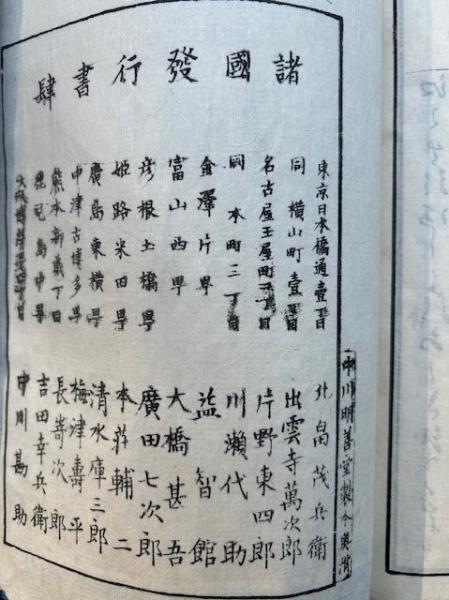 諸國發行書肆
東京日本橋通壹丁目 北畠茂兵衛
同 横山町壹丁目 出雲寺萬次郎
名古屋玉屋町 片野東四郎
同 本町三丁目 川瀬代助
金澤片町 益智館
富山西町 大橋甚吾
彦根土橋町 廣田七次郎
姫路米田町 本荘輔二
廣島東横町 清水庫三郎
中津古博多町 梅津壽平
熊本新 丁目 長嵜次郎
島中町 吉田幸兵衛
大阪 四丁目 中川勘助
中川明善堂製本